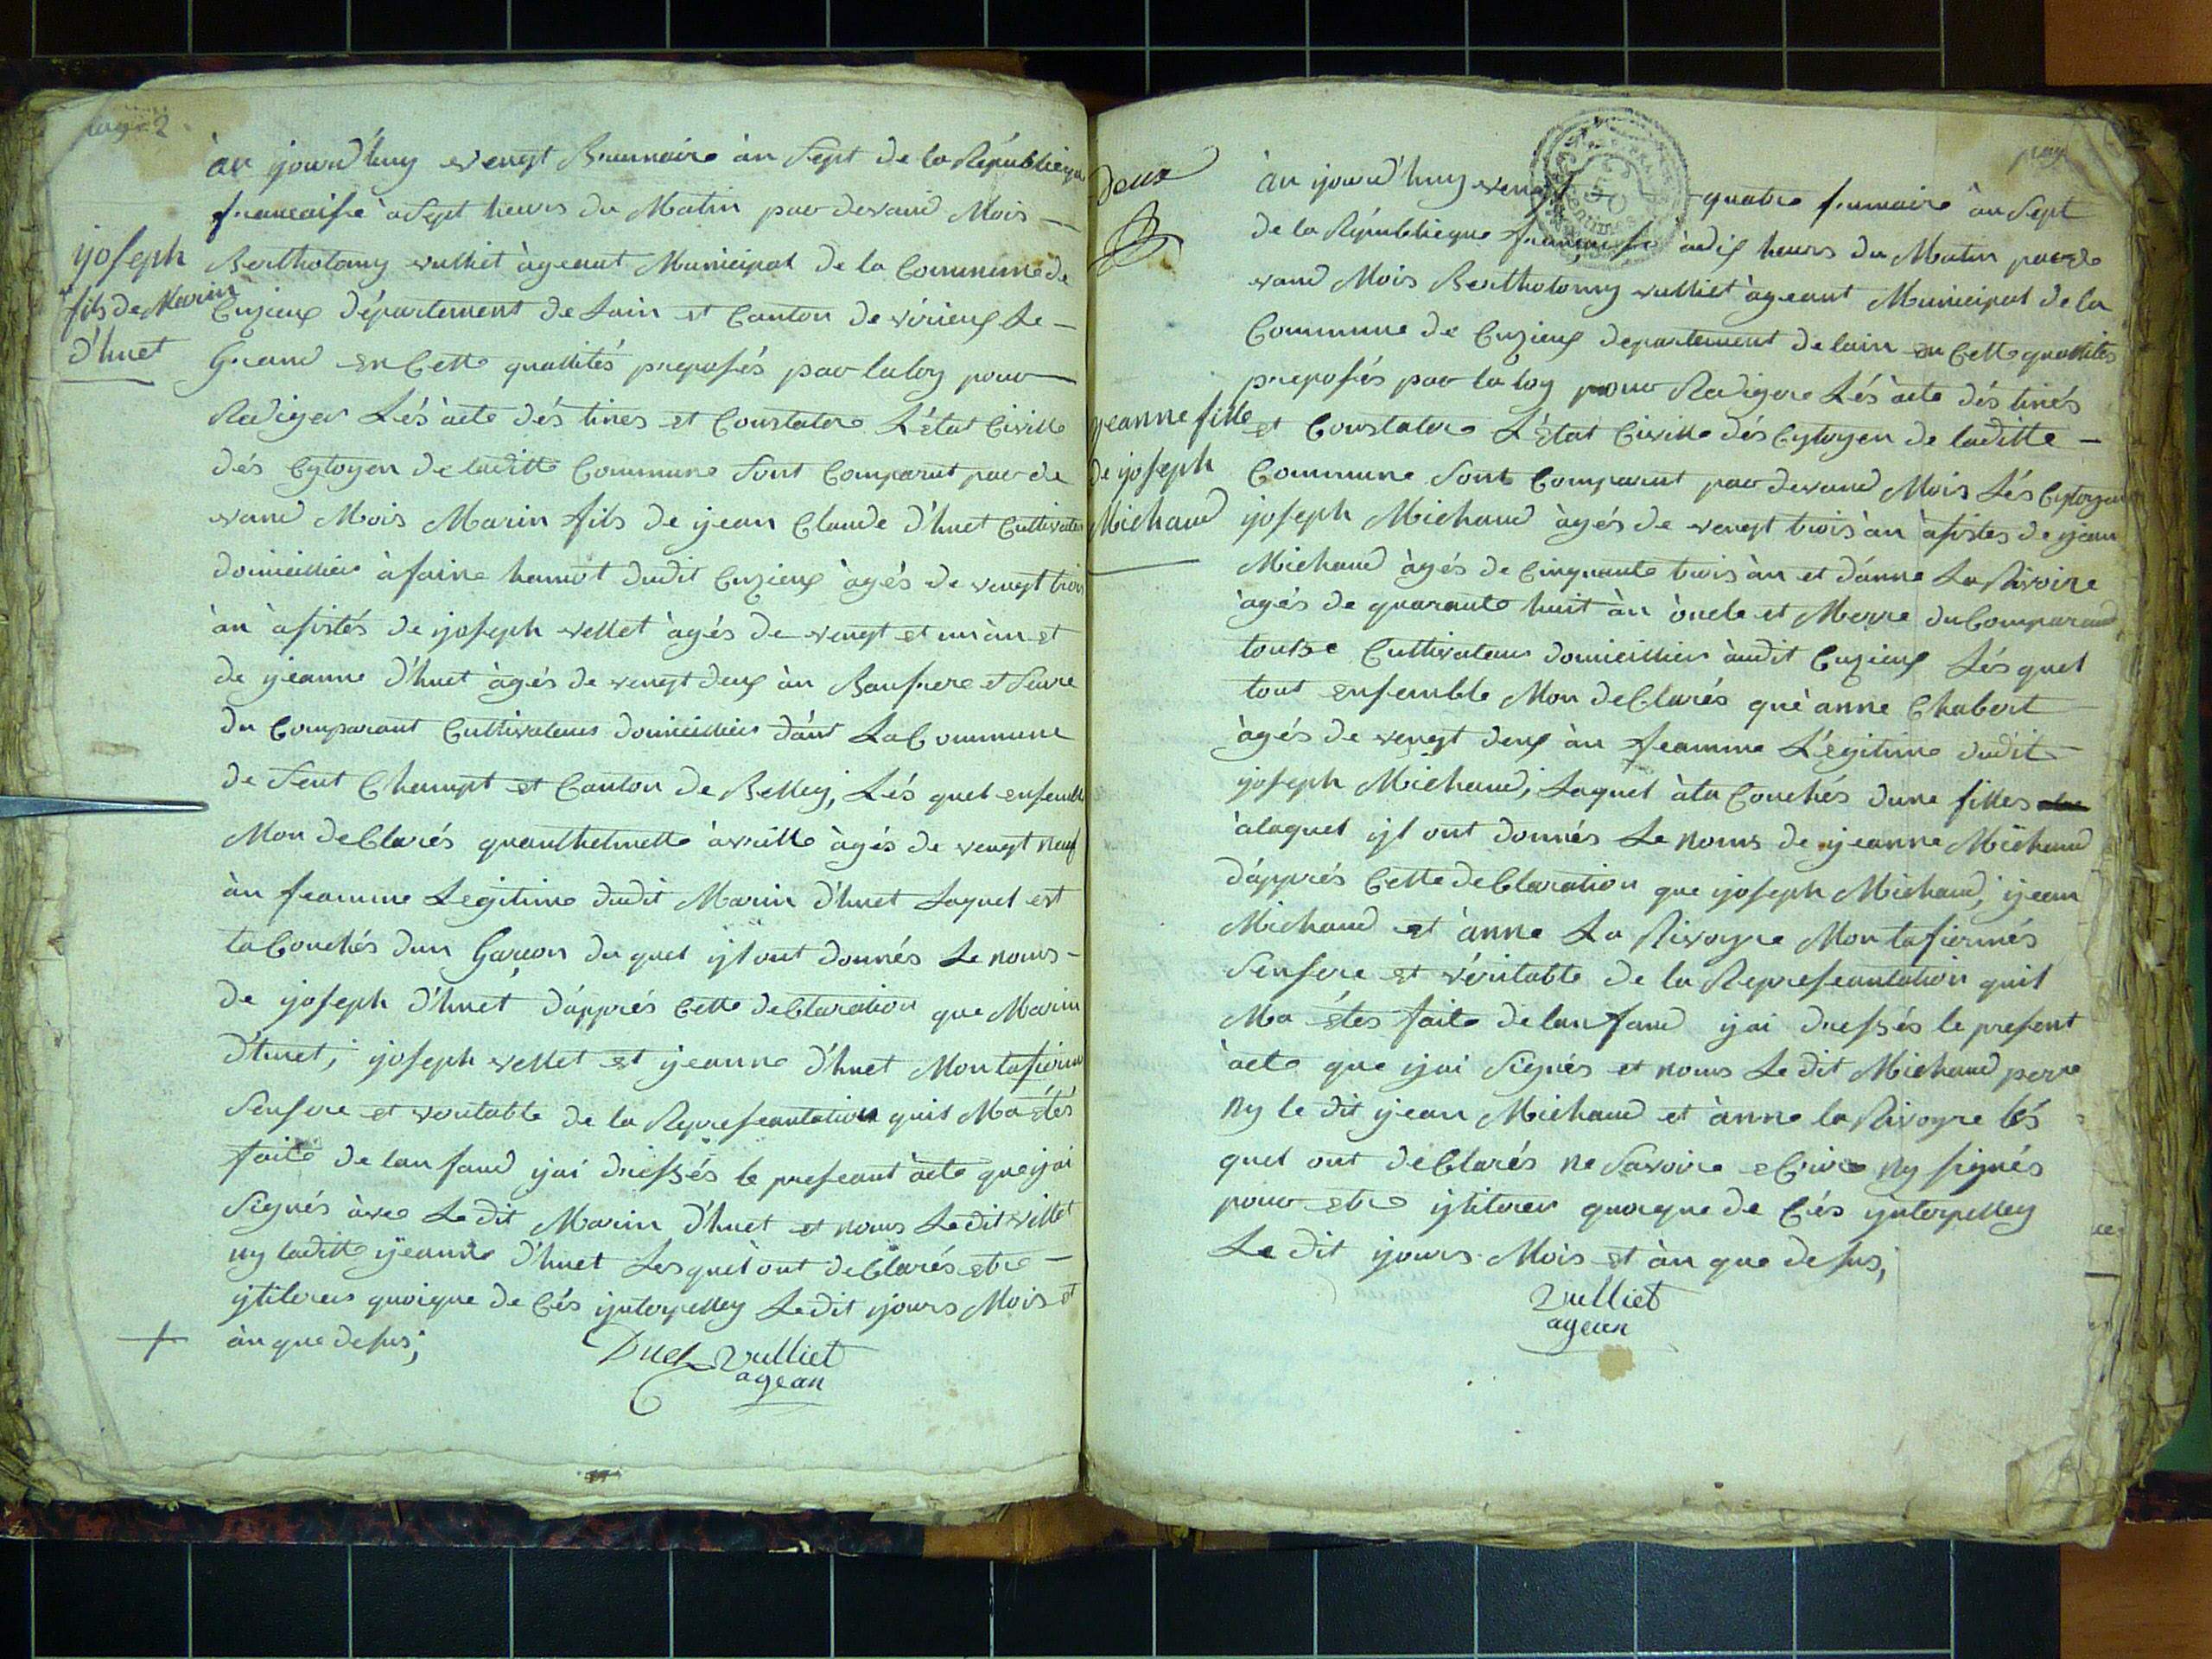 page 2
àu jourd'huy vengt Brumaire àn Sept de la Républieque
francaise à Sept heurs du Matin par devand Mois
ijoseph
fils de Marin
d'huet
Bertholomy vulliet àgeant Municipal de la Commune de
Cuzieux département de Lain et Canton de virieux Le
Grand en Cette quallités preposés par la loy pour
Rediger Lés àcte dés tines et Constater L'état Civille
dés Cytoyen de laditte Commune Sont Comparut par de
vand Mois Marin fils de ijean Claude d'huet Cultivateur
domicillier à faine hamot dudit Cuzieux àgés de vengt trois
àn àsistés de ijoseph vellet àgés de vengt et un àn et
de ijeanne d'huet àgés de vengt deux àn Baufrere et Seure
du Comparant Cultivateurs domicillier dànt La Commune
de Sent Champt et Canton de Belley, Lés quel ensemble
Mon deClarés quanthelmette àvrille àgés de vengt neuf
àn feamme Legitime dudit Marin d'huet Laquel est
ta Couchés dun Garçon du quel ijl ont donnés Le noms
de ijoseph d'huet d'apprés Cette deClaration que Marin
d'huet, ijoseph vellet et ijeanne d'huet Mon tafirmés
Sensere et veritable de la Represeantation quil Ma étés
faite de lan fand ijai dressés le preseant àcte que ijai
Signés àvec Le dit Marin d'huet et noms Le dit vellet
ny laditte ijeanne d'huet Lesquel ont deClarés etre
ijliterer quoique de Cés ijnterpelley Ledit ijours Mois et
àn que desus;
Duex vulliet
agean
deux
àu ijourd'huy vengt quatre frumaire àn Sept
de la Républieque française àdix heurs du Matin par de
vand Mois Bertholomy vulliet àgeant Municipal de la
Commune de Cuzieux departement de lain en Cette quallités
preposés par la loy pour Redigere Lés àcte dés tinés
ijeanne fille
de ijoseph
Michaud
et Constatere L'état Civille dés Cytoyen de laditte
Commune Sont Comparut par devand Mois Lés Cytoyen
ijoseph Michaud àgés de vengt trois àn àsistes de ijean
Michaud àgés de Cinquante trois àn et d'anne La Rivoire
àgés de quarante huit àn òncle et Merre du Comparand
toutse Cultivateur domicillier àudit Cuzieux Lés quel
tout ensemble Mon deClarés què anne Chabert
àgés de vengt deux àn feamme L'égitime dudit
ijoseph Michaud, Laquel àta Couchés dune filles
àlaquel ijl ont donnés Le noms de ijeanne Michaud
d'apprés Cette deClaration que ijoseph Michaud, ijean
Michaud et ànne La Rivoyre Mon tafirmés
Sensere et véritable de la Represeantation quil
Ma étes faite de lan fand ijai dressés le present
àcte que ijai Signés et noms Le dit Michaud perre
ny le dit ijean Michaud et ànne la Rivoyre lés
quel ont deClarés ne Savoire eCrire ny signés
pour etre ijliterer quoique de Cés ijnterpelley
Le dit ijours Mois et àn que desus,
vulliet
agean